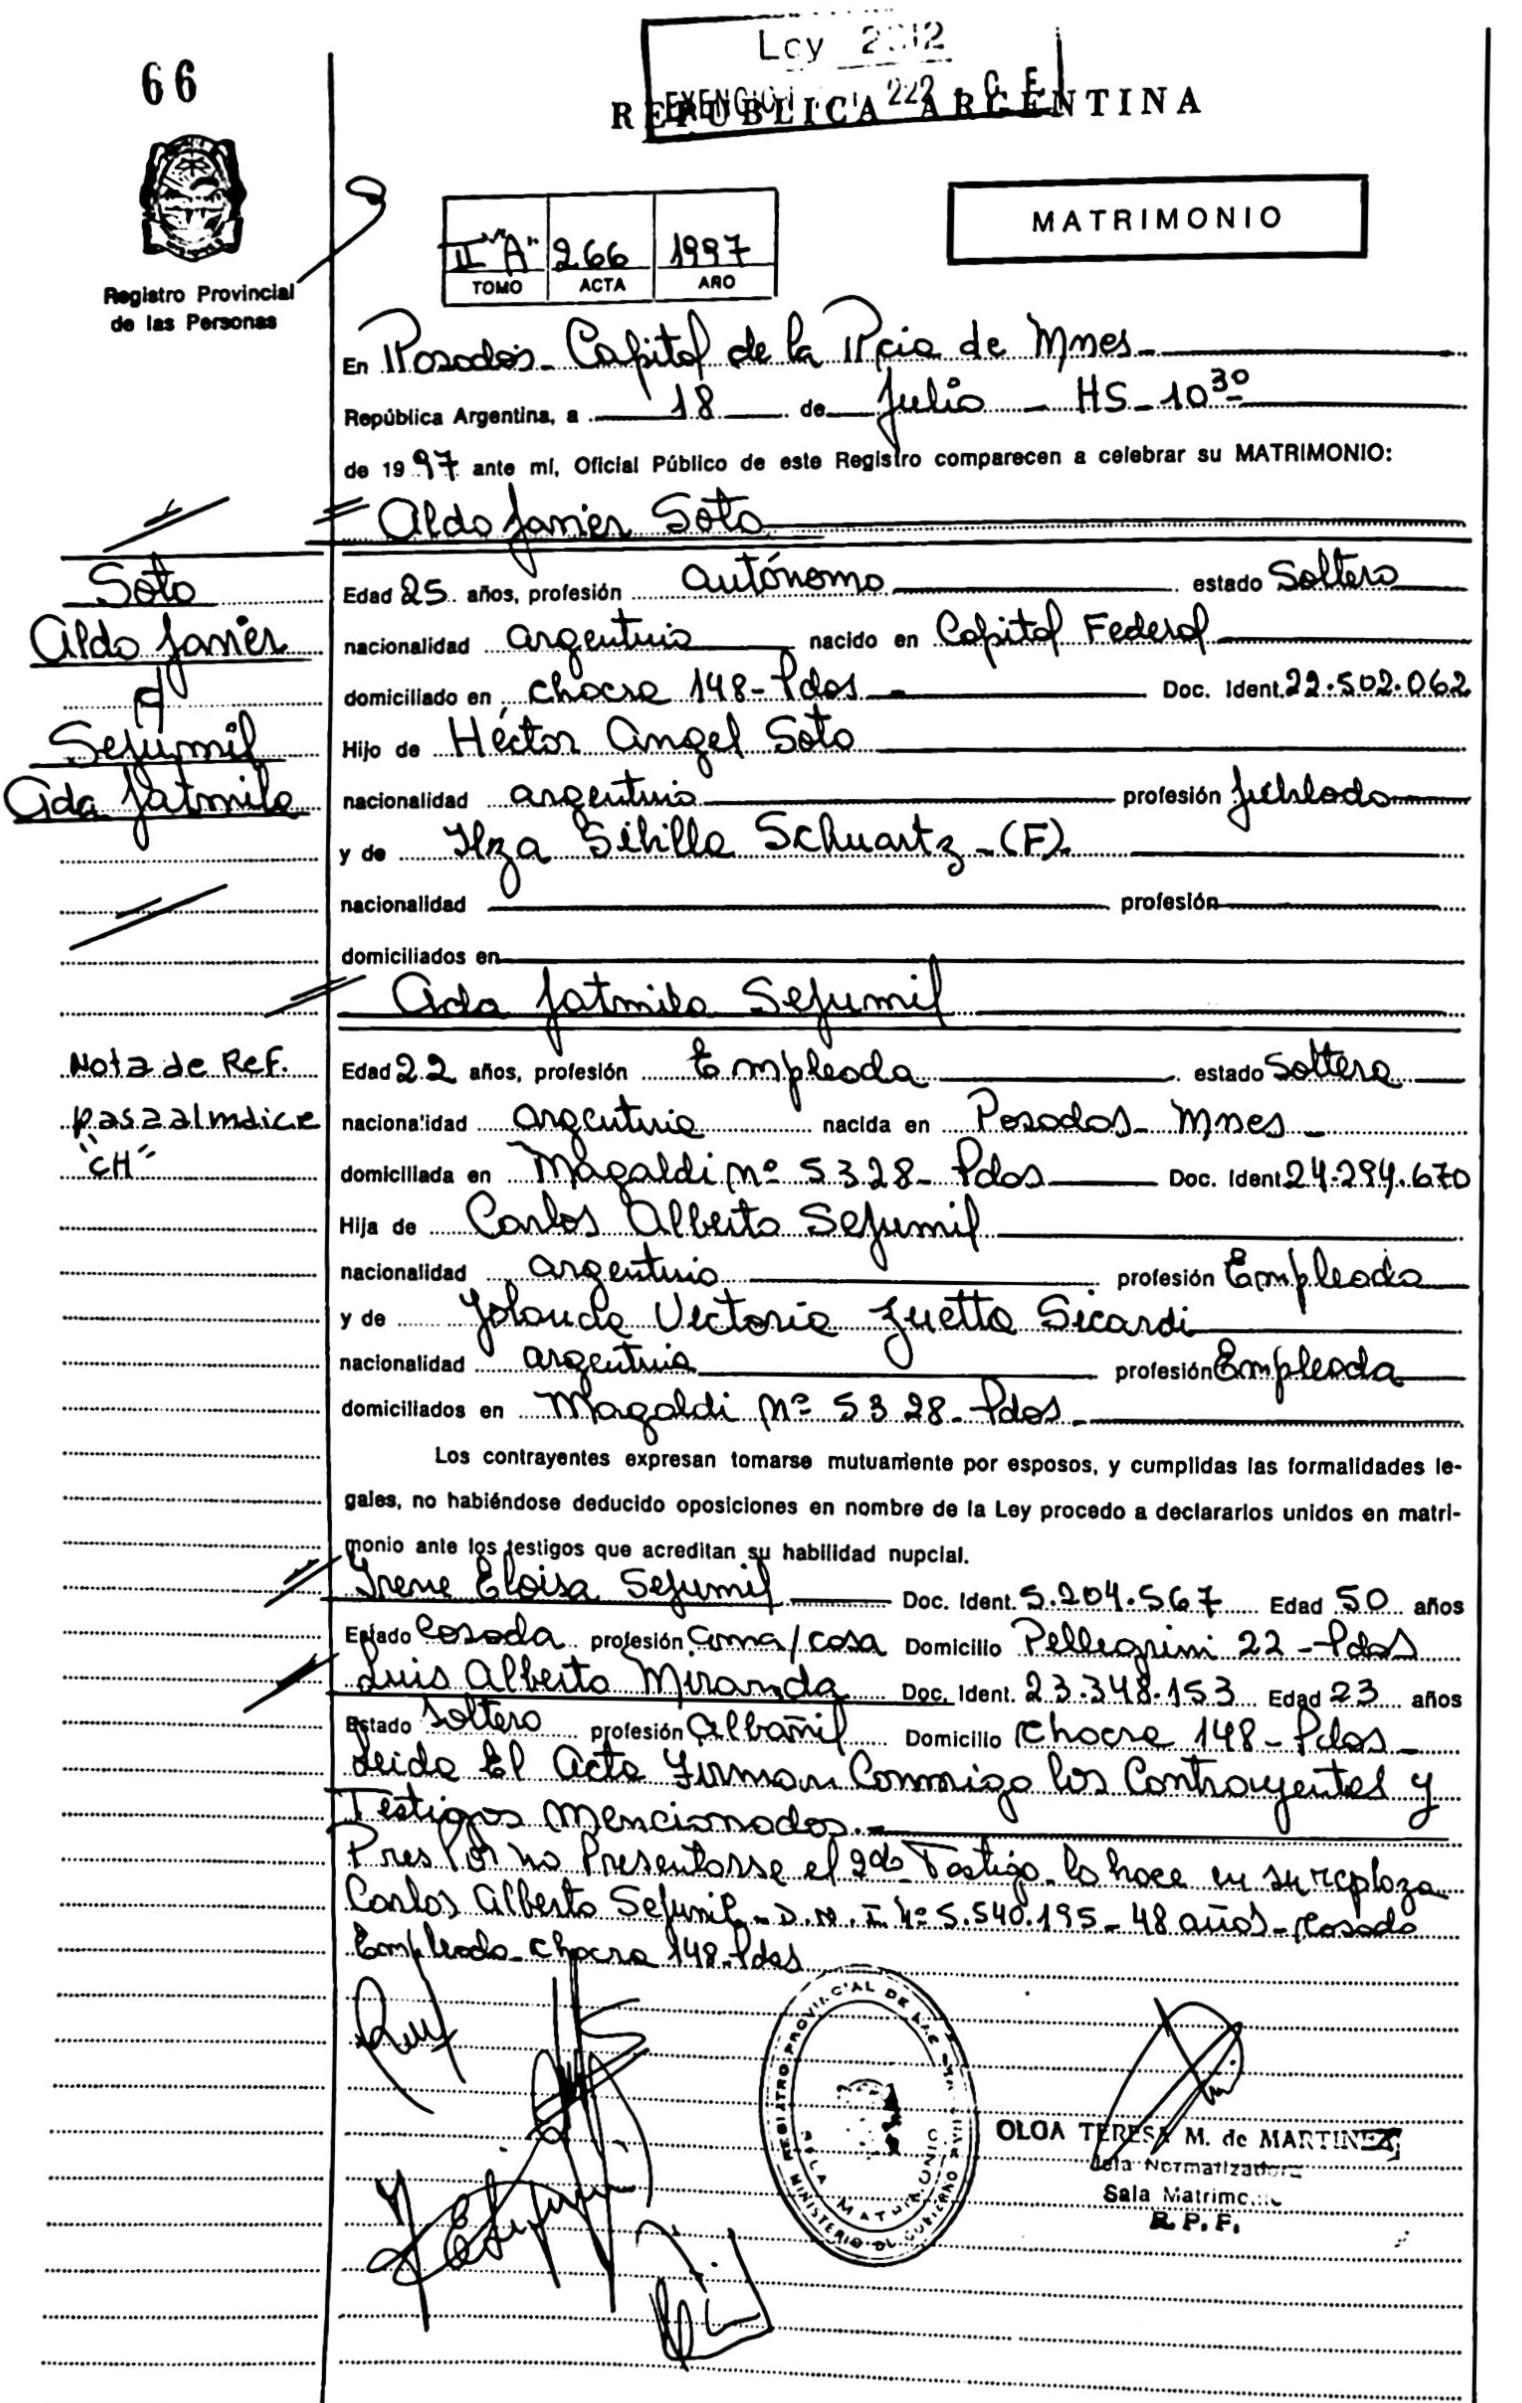 66
Ley 2312
REPUBLICA ARGENTINA
MATRIMONIO
II "A" 266 1997
TOMO ACTA AÑO
Registro Provincial
de las Personas
En Posadas - Capital de la Pcia de Mnes -
República Argentina, a 18 de Julio - HS - 10 30
de 1997 ante mí, Oficial Público de este Registro comparecen a celebrar su MATRIMONIO:
Aldo Javier Soto
Soto
Aldo Javier
Edad 25 años, profesión autónomo estado Soltero
nacionalidad argentina nacido en Capital Federal
domiciliado en chacra 148 - Pdas - Doc. Ident. 22.502.062
Sejumil
Hijo de Héctor Angel Soto
Ada Jatmila
nacionalidad argentina profesión jubilado
y de Ilza Sibilla Schuartz - (F)
nacionalidad profesión
domiciliados en
Ada Jatmila Sejumil
Nota de Ref.
pasa al indice
"CH"
Edad 22 años, profesión Empleada estado Soltera
nacionalidad argentina nacida en Posadas - Mnes -
domiciliada en Magaldi nº 5328 - Pdas Doc. Ident 24.294.670
Hija de Carlos Alberto Sejumil
nacionalidad argentina profesión Empleado
y de Yolanda Victoria Zuetta Sicardi
nacionalidad argentina profesión Empleada
domiciliados en Magaldi Nº 5328 - Pdas -
Los contrayentes expresan tomarse mutuamente por esposos, y cumplidas las formalidades le-
gales, no habiéndose deducido oposiciones en nombre de la Ley procedo a declararlos unidos en matri-
monio ante los testigos que acreditan su habilidad nupcial.
Irene Eloisa Sejumil Doc. Ident. 5.204.567 Edad 50 años
Estado Casada profesión ama/casa Domicilio Pellegrini 22 - Pdas
Luis Alberto Miranda Doc. Ident. 23.348.153 Edad 23 años
Estado soltero profesión Albañil Domicilio chacra 148 - Pdas -
Leida El Acta Firman Conmigo los Contrayentes y
Testigos Mencionados. -
Por no Presentarse el 2do Testigo lo hace en su replaza
Carlos Alberto Sejumil - D.N.I Nº 5.540.195 - 48 años - Casado
Empleado - chacra 148 - Pdas
REGISTRO PROVINCIAL DE LAS
MINISTERIO DE GOBIERNO
OLGA TERESA M. de MARTINEZ
Jefa Normatizadora
Sala Matrimonio
R. P. P.